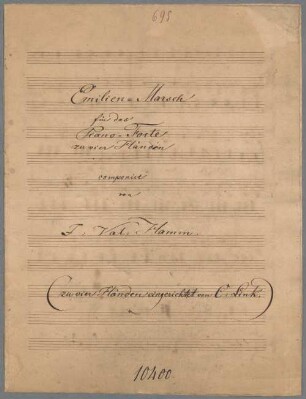 695
Emilien-Marsch
für das
Piano-Forte
zu vier Händen
componirt
von
J. Val. Hamm.
(zu vier Händen eingerichtet von C. Link.)
10400